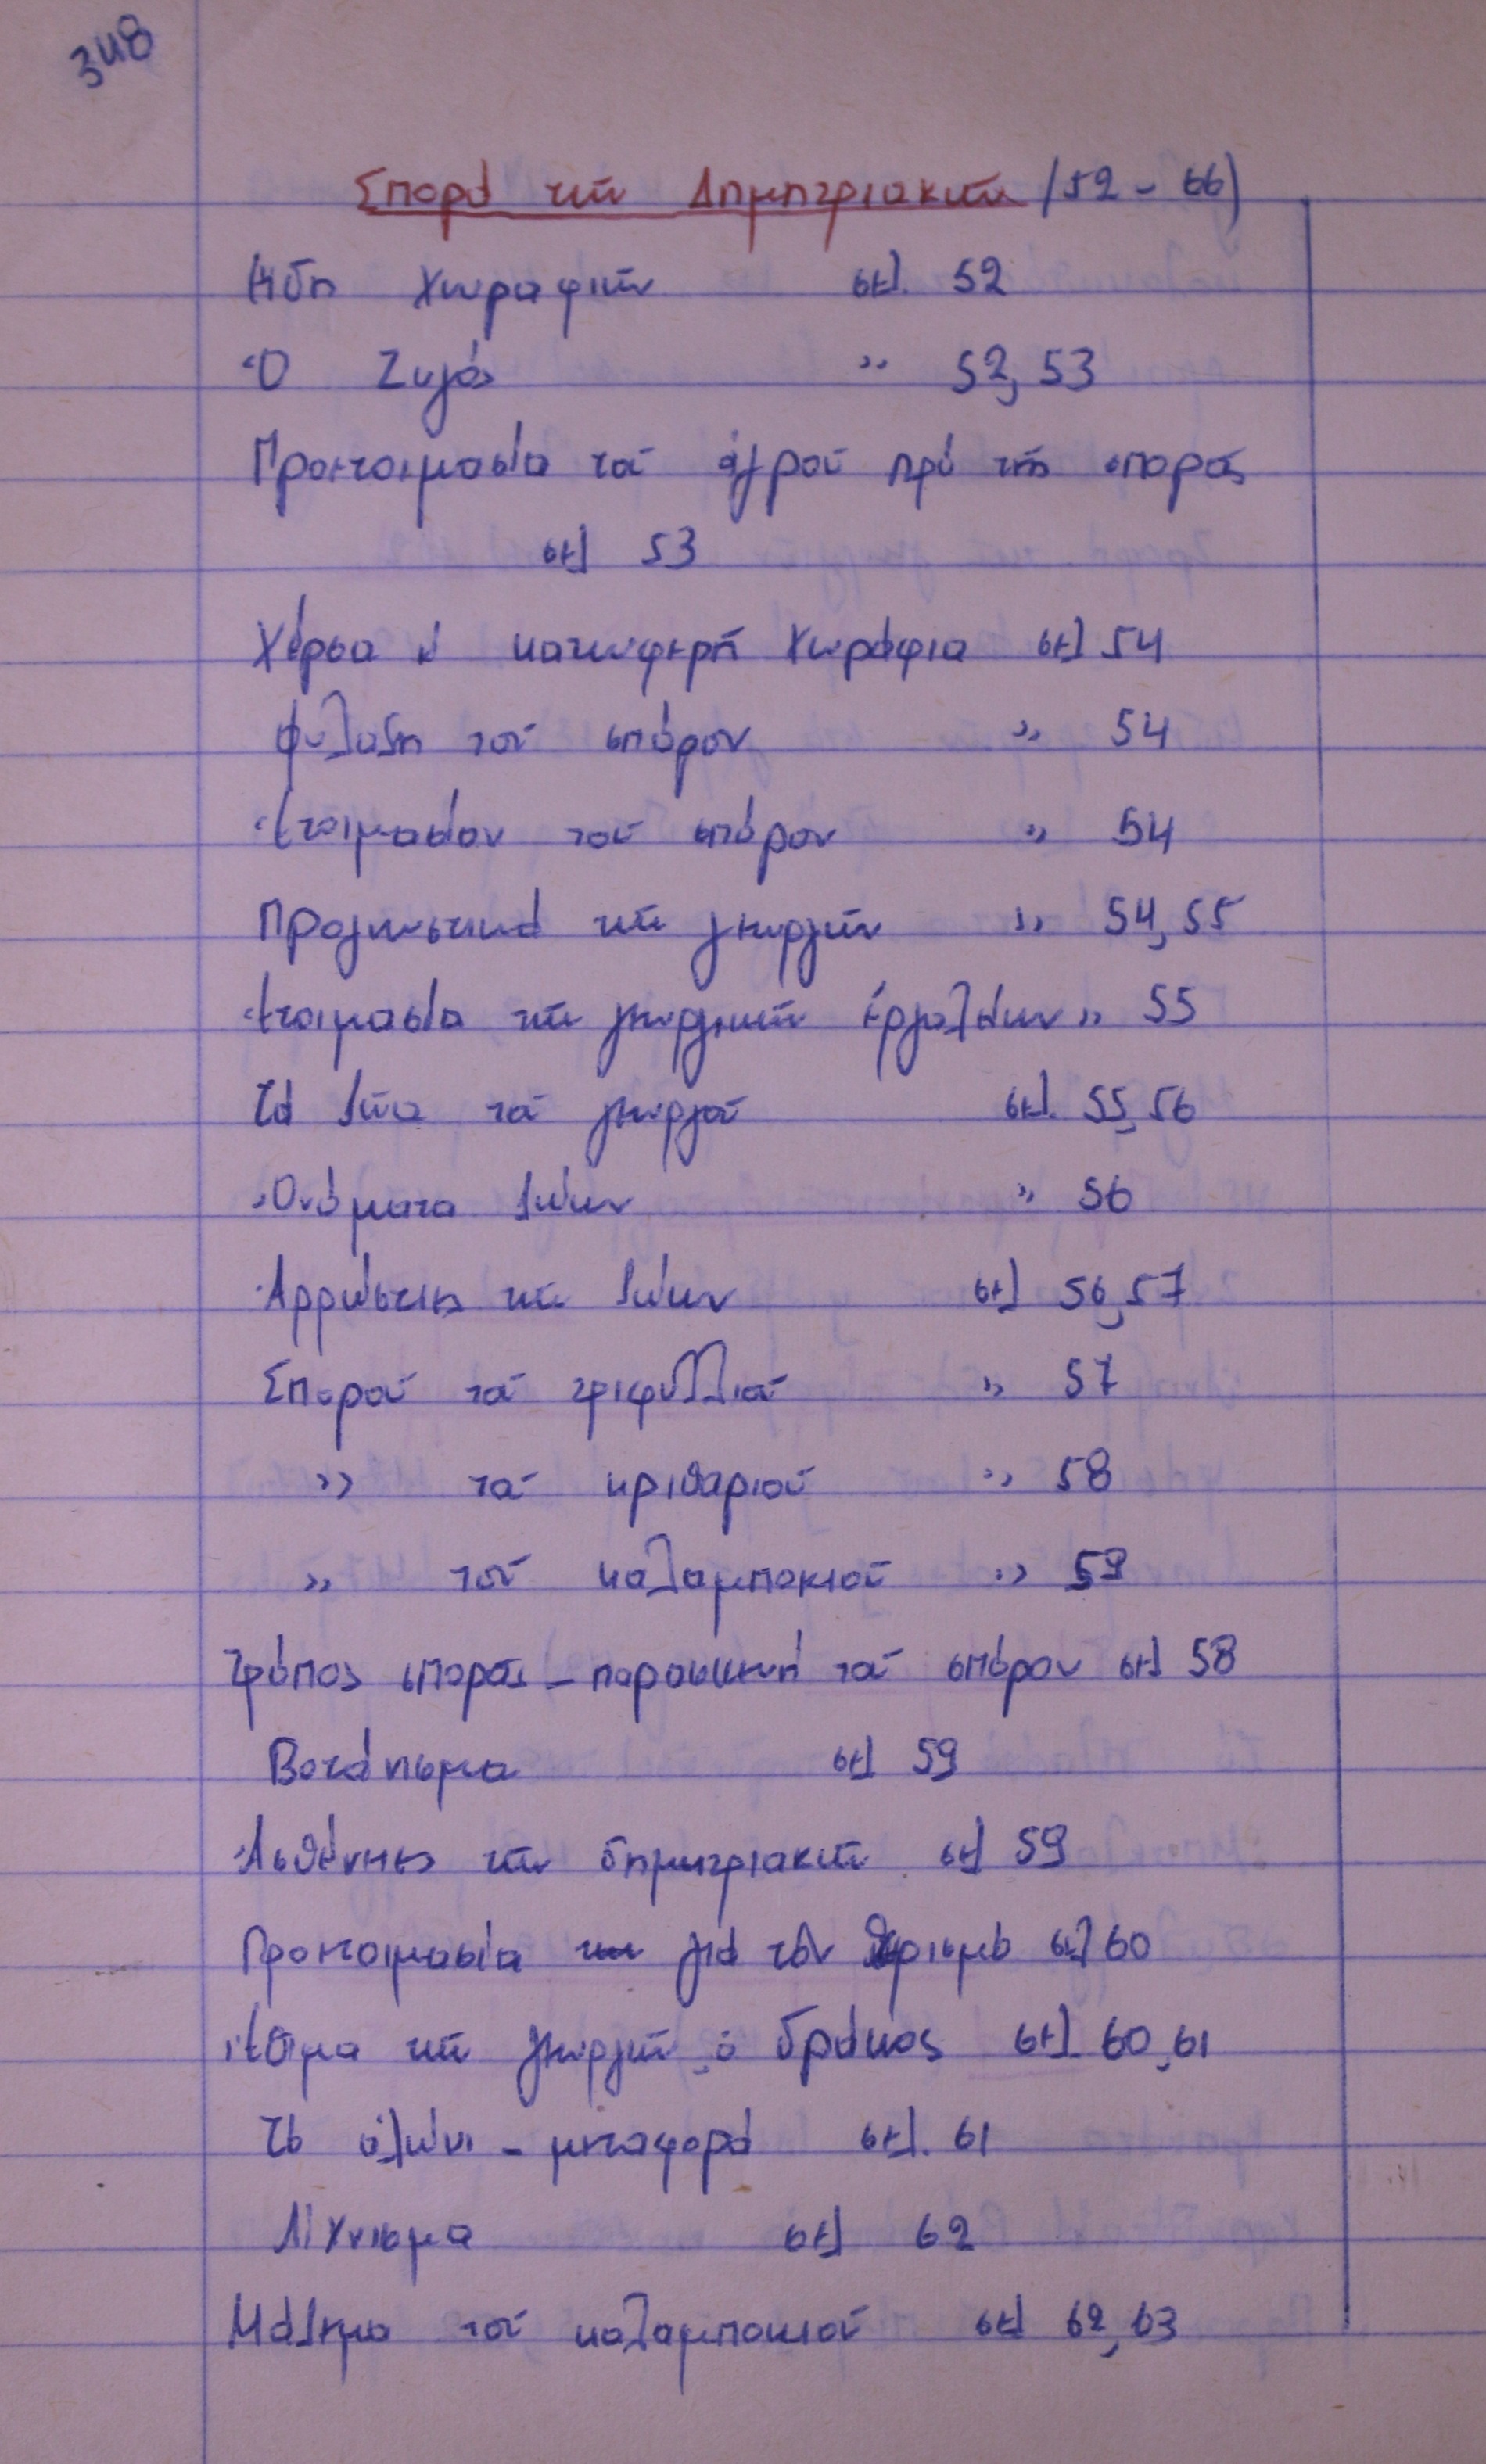 348
Σπορά τῶν Δημητριακῶν (52 - 66)
Εἴδη χωραφιῶν σελ. 52
Ὁ Ζυγός ,, 52, 53
Προετοιμασία τοῦ ἀγροῦ πρό τῆς σπορᾶς
σελ 53
Χέρσα κ' κατωφερῆ χωράφια σελ 54
Φύλαξη τοῦ σπόρου ,, 54
Ἑτοιμασίαν τοῦ σπόρου ,, 54
Προγνωστικά τῶν γεωργῶν ,, 54, 55
Ἑτοιμασία τῶν γεωργικῶν ἐργαλείων ,, 55
Τά ζῶα τοῦ γεωργοῦ σελ. 55, 56
Ὀνόματα ζώων ,, 56
Ἀρρώστιες τῶν ζώων σελ 56, 57
Σπορά τοῦ τριφυλλιοῦ ,, 57
,, τοῦ κριθαριοῦ ,, 58
,, τοῦ καλαμποκιοῦ ,, 59
Τρόπος σπορᾶς - παρασκευή τοῦ σπόρου σελ 58
Βοτάνισμα σελ 59
Ἀσθένειες τῶν δημητριακῶν σελ 59
Προετοιμασία γιά τόν θερισμό σελ 60
Ἔθιμα τῶν γεωργῶν, ὁ δράκος σελ. 60, 61
Τό ἁλώνι - μεταφορά σελ. 61
Λίχνισμα σελ 62
Μάζεμα τοῦ καλαμποκιοῦ σελ 62, 63